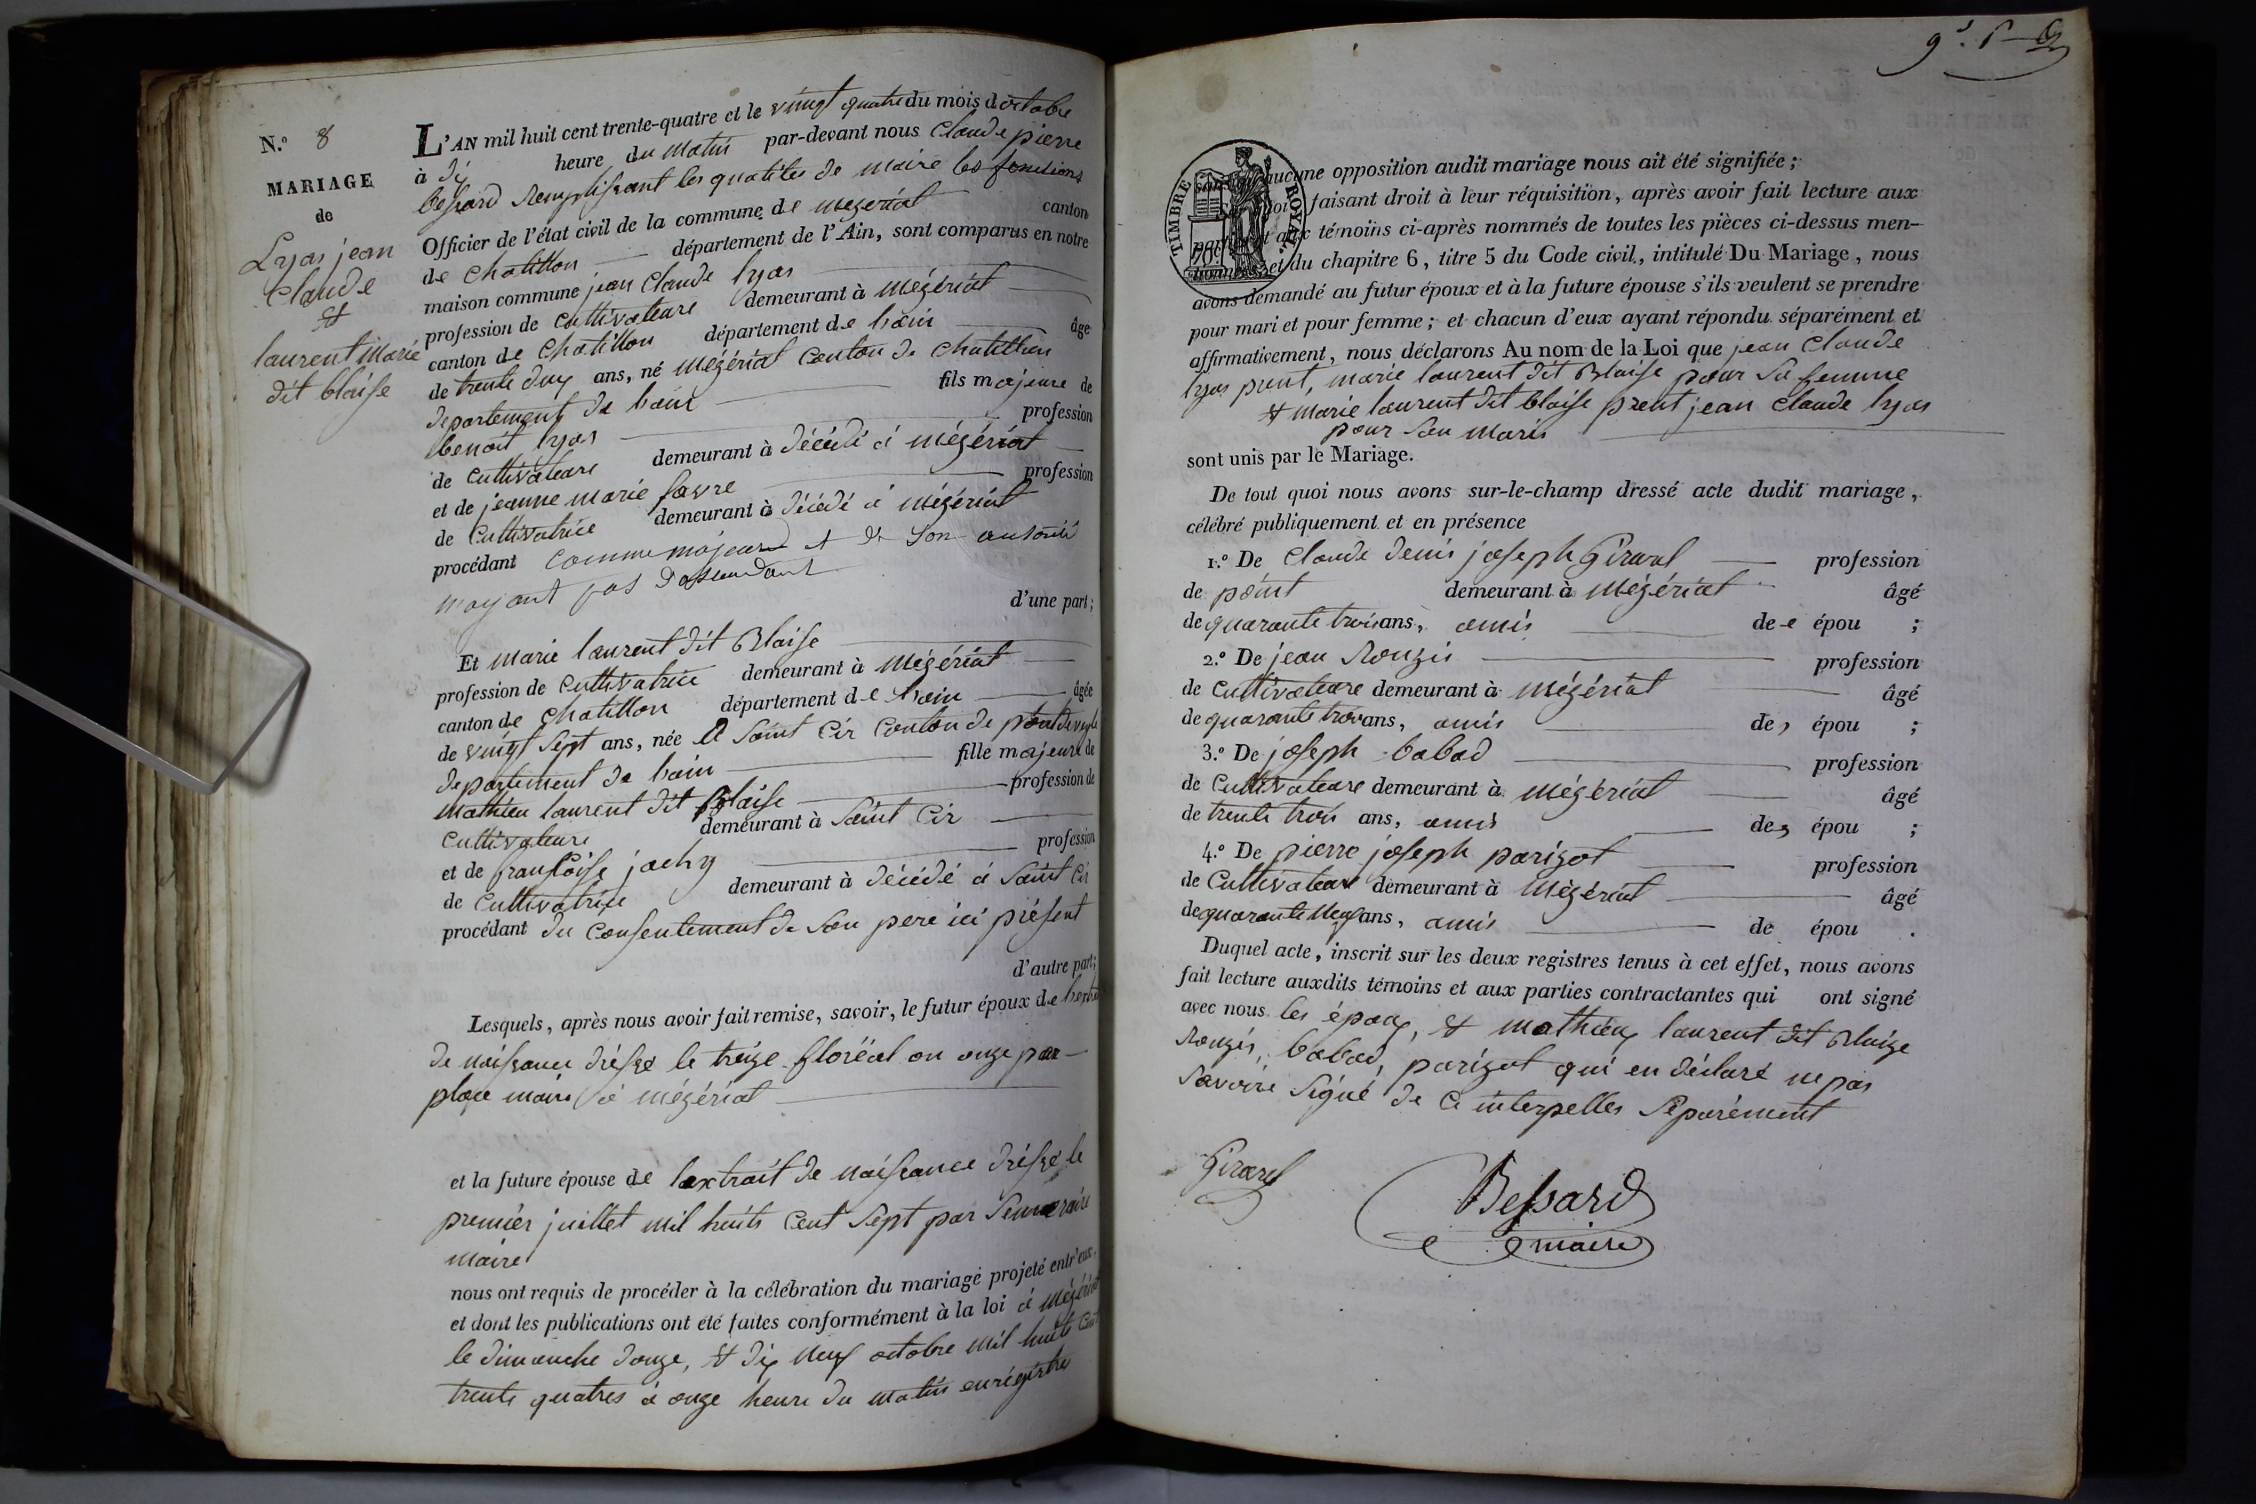 N.º 8
MARIAGE
de
Lyas jean
Claude
et
laurent Marie
dit blaise
L'AN mil huit cent trente-quatre et le vingt quatre du mois doctobre
à dix heure du Matin par-devant nous Claude pierre
bessard Remplissant les qualités de maire les fonctions
Officier de l'état civil de la commune de mezériat canton
de Chatillon département de l'Ain, sont comparus en notre
maison commune jean Claude lyas
profession de Cultivateure demeurant à mézériat
canton de Chatillon département de hain âgé
de trente dux ans, né mézériat Canton de chatillon
departement de hain fils majeure de
benoit lyas profession
de Cultivateure demeurant à décédé à mézériat
et de jeanne marie favre profession
de Cultivatrice demeurant à décédé à mézériat
procédant comme majeure et de son autorité
nayant pas dassendant
d'une part;
Et marie laurent dit Blaise
profession de Cultivatrice demeurant à mézériat
canton de Chatillon département de hain âgée
de vingt sept ans, née a saint Cir Conton de pont de veyle
departement de hain fille majeure de
Mathieu laurent dit Blaise profession de
Cultivateure demeurant à saint Cir
et de françoise jachy profession
de Cultivatrice demeurant à décédé à saint Cir
procédant du Consentement de son pere ici présent
d'autre part;
Lesquels, après nous avoir fait remise, savoir, le futur époux de
de naissance dréssé le treize floréal on onze par
place maire à mézériat
et la future épouse de lextrait de naissance dréssé le
premier juillet mil huits Cent sept par
maire
nous ont requis de procéder à la célébration du mariage projeté entr'eux,
et dont les publications ont été faites conformément à la loi à mézériat
le dimanche douze, et dix neuf octobre mil huits Cent
trente quatres à onze heure du matin enrégistre
TIMBRE ROYAL
70c
sans qu'aucune opposition audit mariage nous ait été signifiée;
faisant droit à leur réquisition, après avoir fait lecture aux
parties et aux témoins ci-après nommés de toutes les pièces ci-dessus men-
tionnées, et du chapitre 6, titre 5 du Code civil, intitulé Du Mariage, nous
avons demandé au futur époux et à la future épouse s'ils veulent se prendre
pour mari et pour femme; et chacun d'eux ayant répondu séparément et
affirmativement, nous déclarons Au nom de la Loi que jean Claude
lyas prent, marie laurent dit Blaise pour sa femme
et marie laurent dit blaise prent jean Claude lyas
pour son maris
sont unis par le Mariage.
De tout quoi nous avons sur-le-champ dressé acte dudit mariage,
célébré publiquement et en présence
1.º De Claude denis joseph Girard profession
de point demeurant à mézériat âgé
de quarante trois ans, amis de e épou ;
2.º De jean Rouzis profession
de Cultivateure demeurant à mézériat âgé
de quarante trois ans, amis de, épou ;
3.º De joseph babad profession
de Cultivateure demeurant à mézériat âgé
de trente trois ans, amis de, épou ;
4.º De pierre joseph parizot profession
de Cultivateur demeurant à mézériat âgé
de quarante neuf ans, amis de épou .
Duquel acte, inscrit sur les deux registres tenus à cet effet, nous avons
fait lecture auxdits témoins et aux parties contractantes qui ont signé
avec nous les époux, et mathieu laurent dit Blaize
Rouzis, babad, parizot qui en déclaré ne pas
savoire signé de Ce interpelles séparément
Girard
Bessard
maire